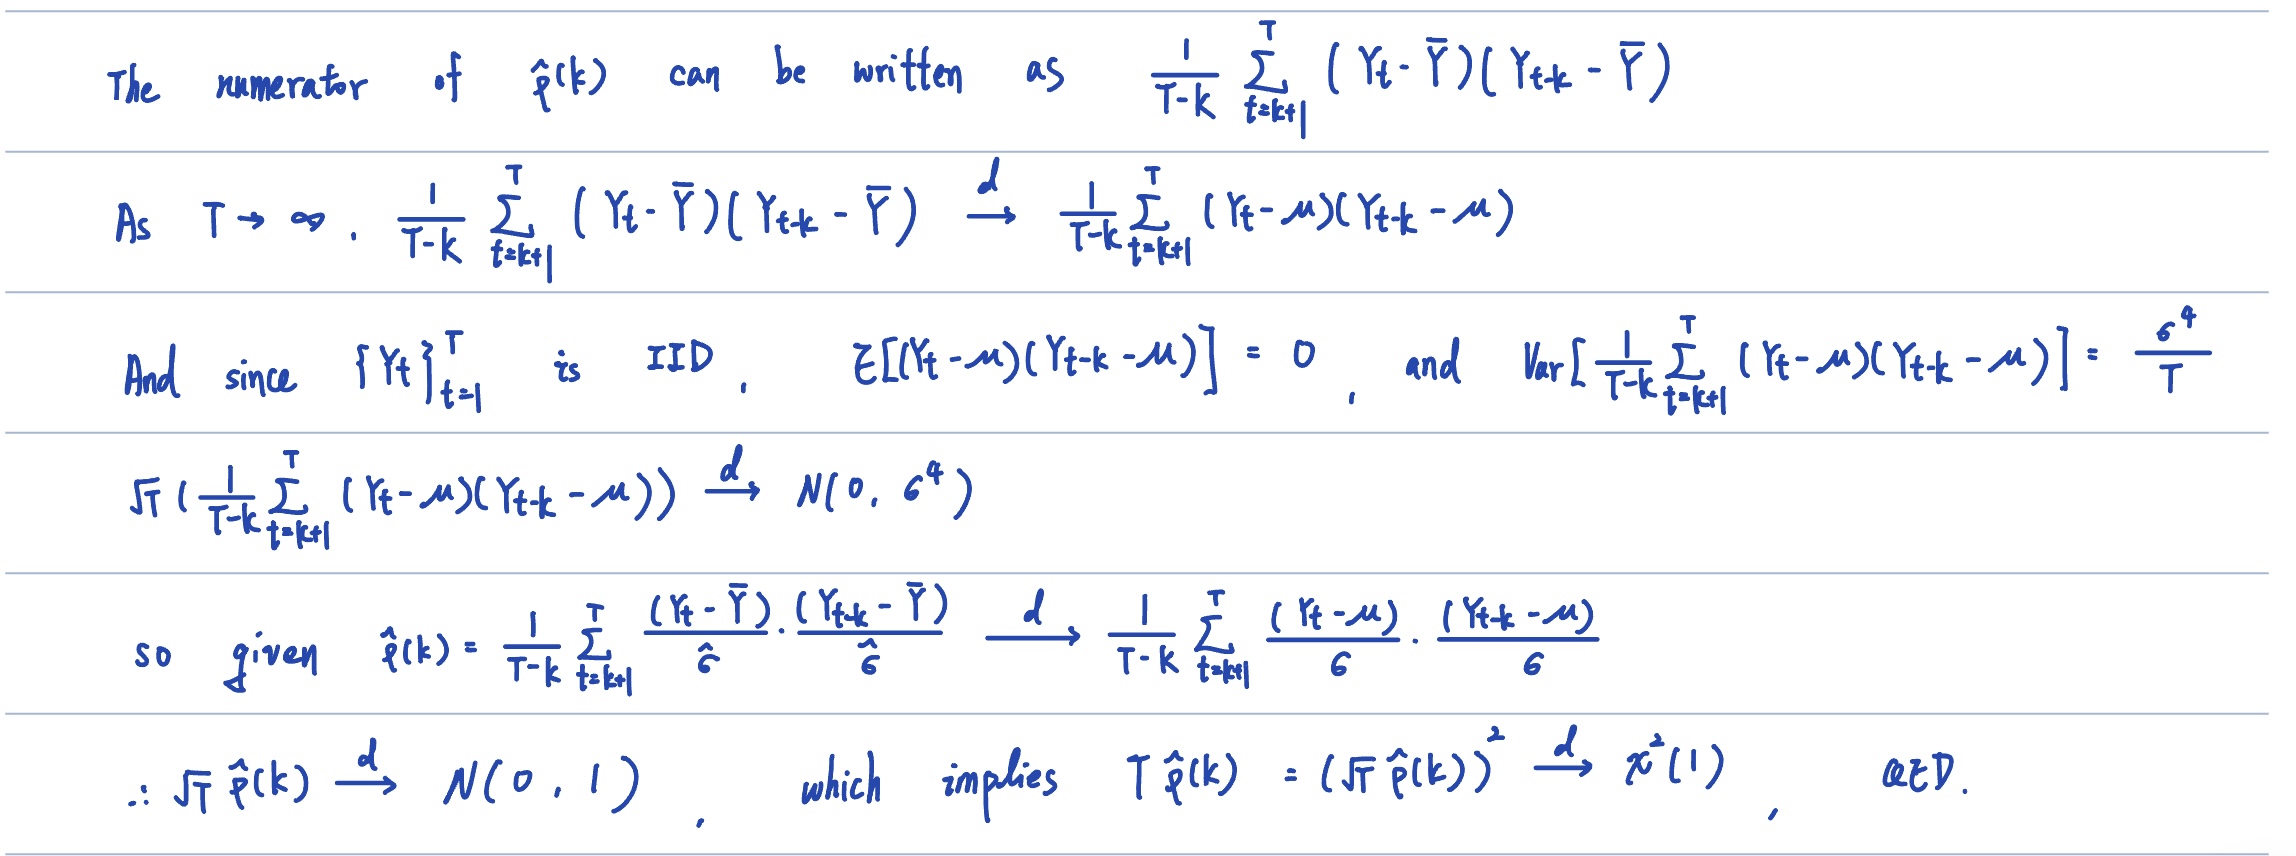 The numerator of ρ̂(k) can be written as \frac{1}{T-k} \sum_{t=k+1}^{T} (Y_t - \bar{Y})(Y_{t-k} - \bar{Y})
As T → ∞, \frac{1}{T-k} \sum_{t=k+1}^{T} (Y_t - \bar{Y})(Y_{t-k} - \bar{Y}) \xrightarrow{d} \frac{1}{T-k} \sum_{t=k+1}^{T} (Y_t - μ)(Y_{t-k} - μ)
And since \{Y_t\}_{t=1}^{T} is IID, E[(Y_t - μ)(Y_{t-k} - μ)] = 0, and Var[\frac{1}{T-k} \sum_{t=k+1}^{T} (Y_t - μ)(Y_{t-k} - μ)] = \frac{σ^4}{T}
\sqrt{T} (\frac{1}{T-k} \sum_{t=k+1}^{T} (Y_t - μ)(Y_{t-k} - μ)) \xrightarrow{d} N(0, σ^4)
so given ρ̂(k) = \frac{1}{T-k} \sum_{t=k+1}^{T} \frac{(Y_t - \bar{Y})}{\hat{σ}} · \frac{(Y_{t-k} - \bar{Y})}{\hat{σ}} \xrightarrow{d} \frac{1}{T-k} \sum_{t=k+1}^{T} \frac{(Y_t - μ)}{σ} · \frac{(Y_{t-k} - μ)}{σ}
∴ \sqrt{T} ρ̂(k) \xrightarrow{d} N(0, 1), which implies T ρ̂(k) = (\sqrt{T} ρ̂(k))^2 \xrightarrow{d} χ^2(1), QED.